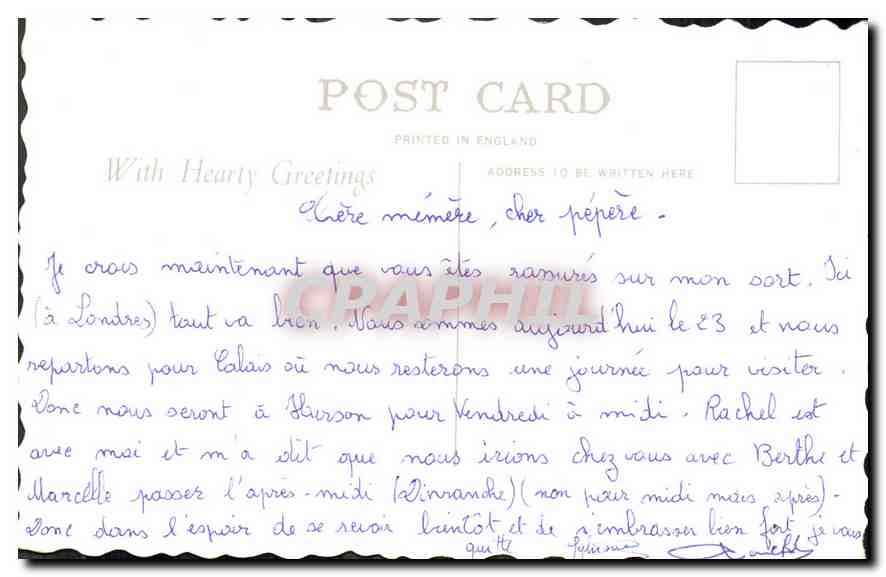 POST CARD
PRINTED IN ENGLAND
With Hearty Greetings
ADDRESS TO BE WRITTEN HERE
Chère mémère, cher pépère.
Je crois maintenant que vous êtes rassurés sur mon sort. Ici
(à Londres) tout va bien. Nous sommes aujourd'hui le 23 et nous
repartons pour Calais où nous resterons une journée pour visiter.
Donc nous seront à Hirson pour Vendredi à midi. Rachel est
avec moi et m'a dit que nous irions chez vous avec Berthe et
Marcelle passer l'après-midi (Dimanche) (non pour midi mais après)-
Donc dans l'espoir de se revoir bientôt et de s'embrasser bien fort je vous
quitte
CPAPHIL